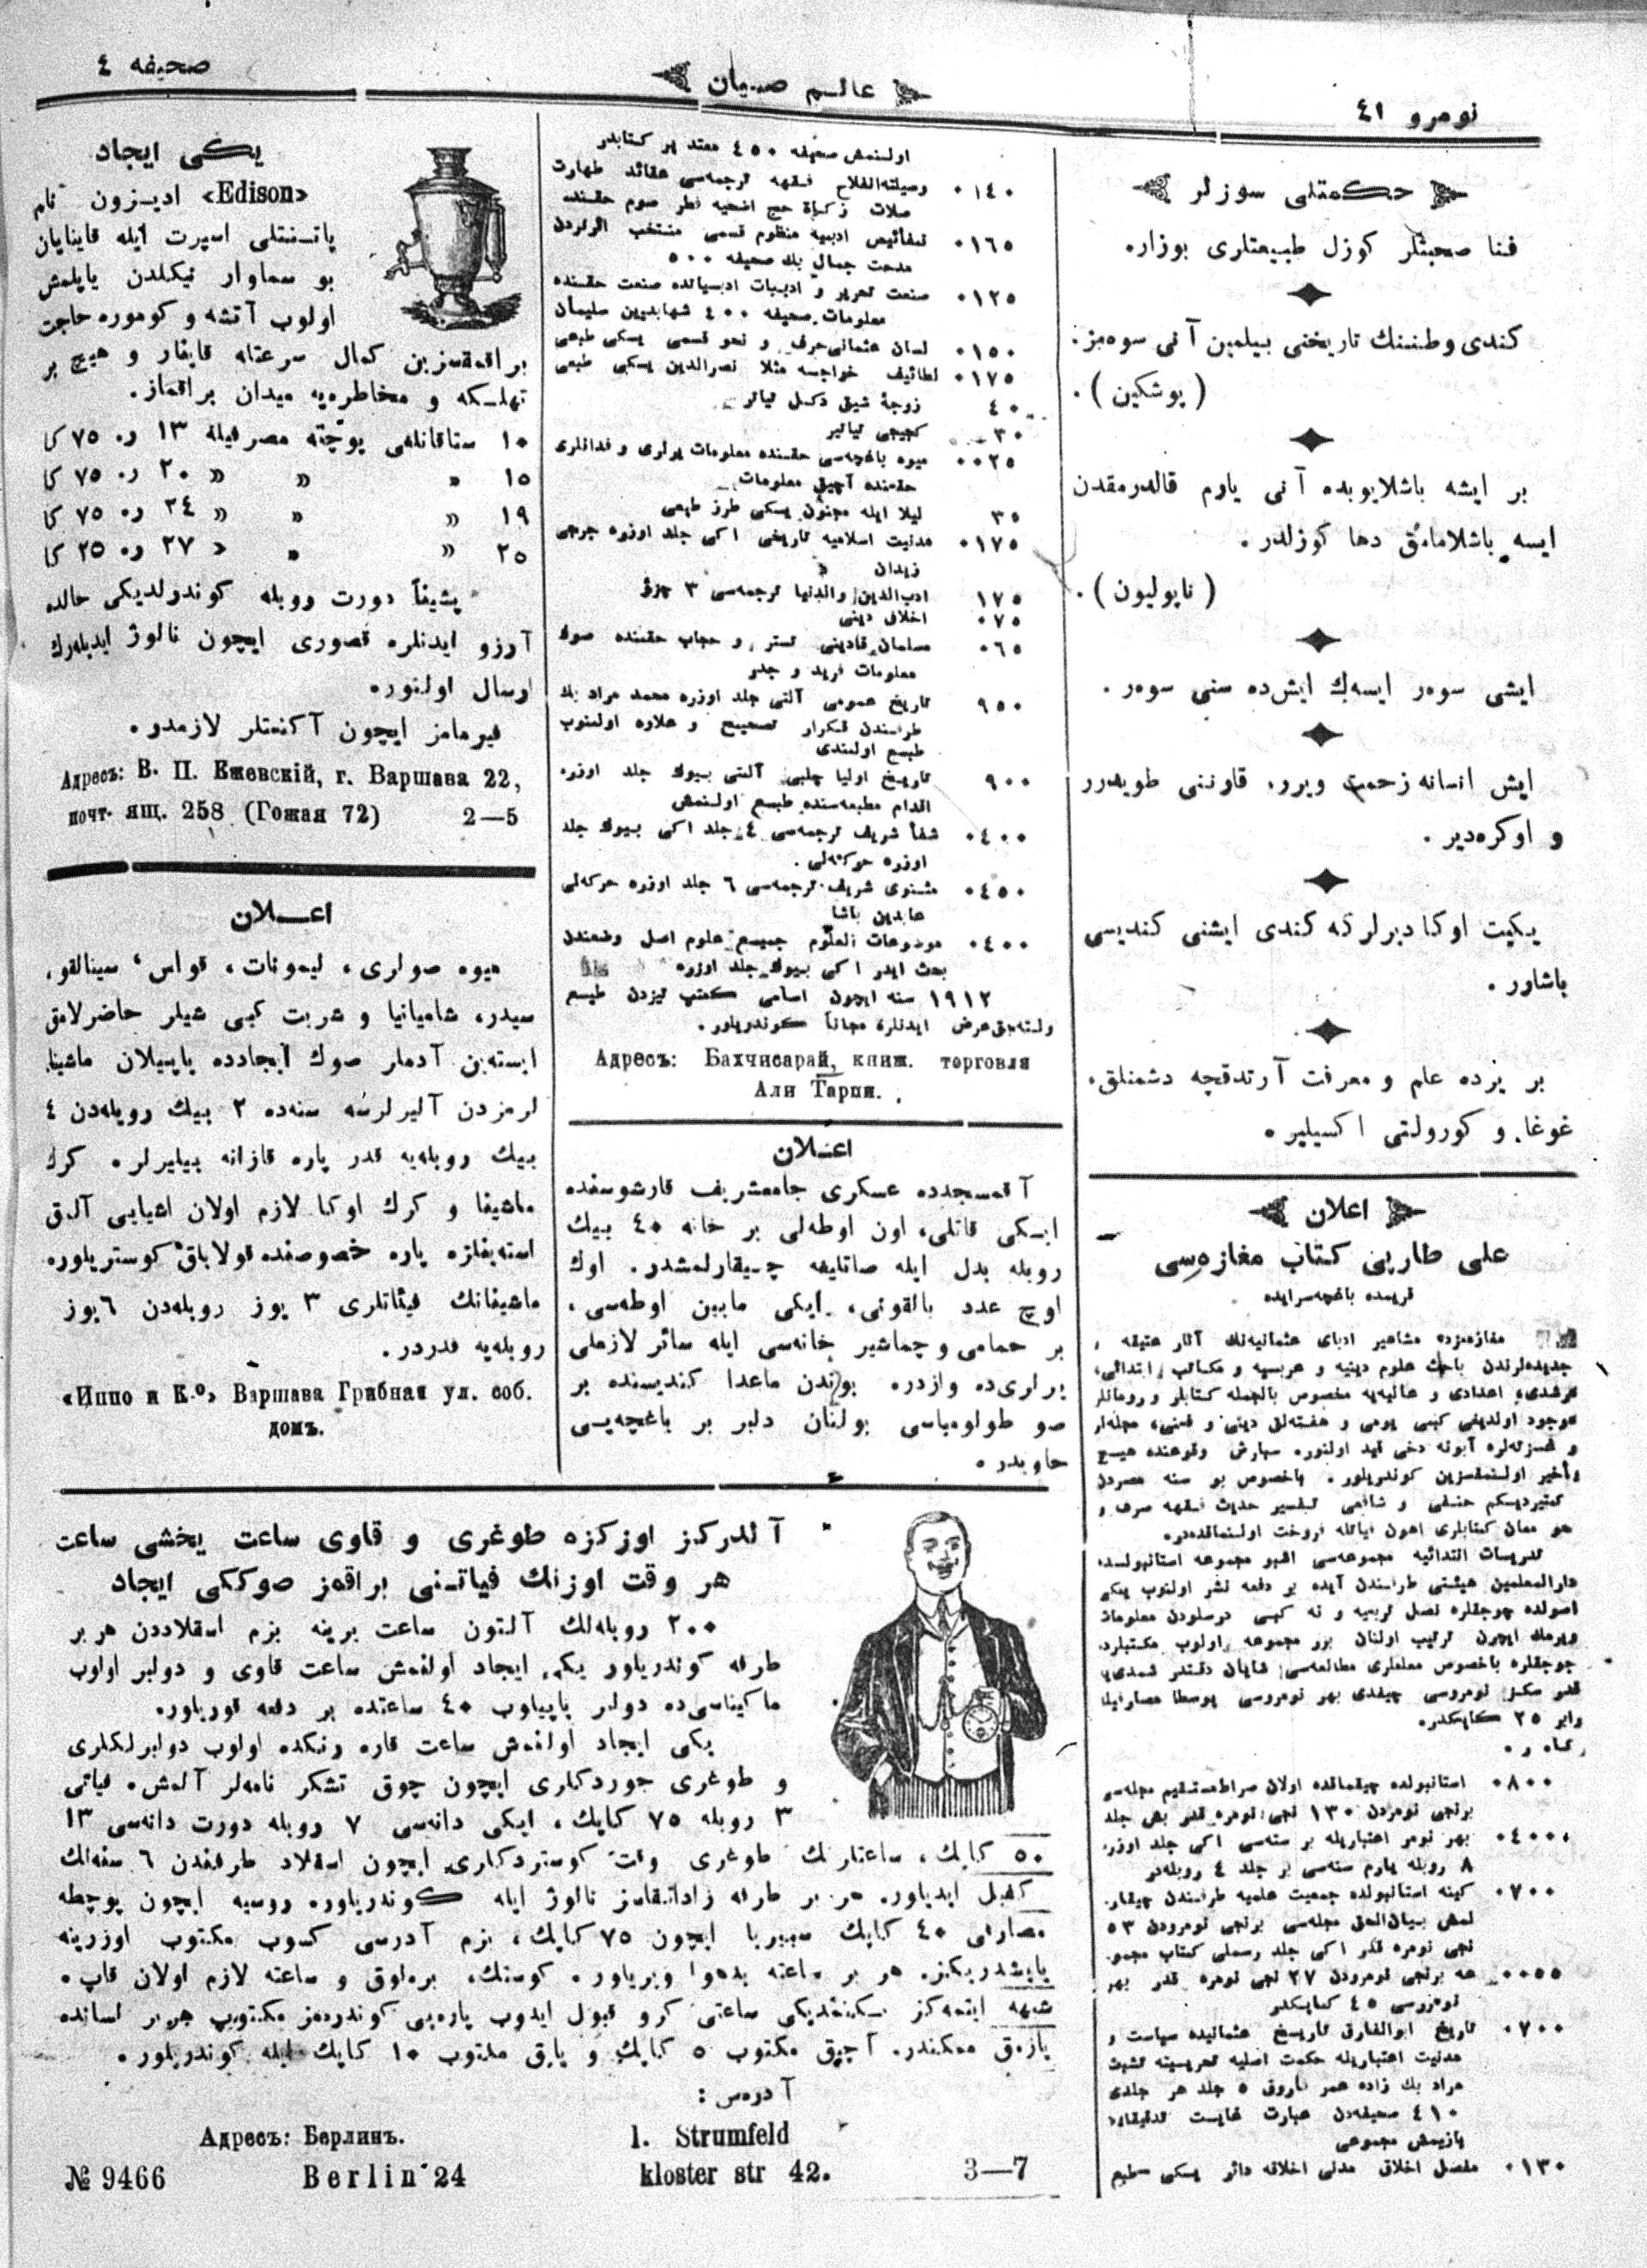 نومرو ٤١
عالم صبیان
صحیفه ٤
حكمتلی سوزلر
فنا صحبتلر كوزل طبیعتلری بوزار.
كندی وطننك تاریخنی بیلمین آنی سوه‌مز.
(پوشكین).
بر ایشه باشلایوبده آنی یارم قالدرمقدن
ایسه باشلامامق دها كوزلدر.
(ناپولیون).
ایشی سوه‌ر ایسه‌ك ایش‌ده سنی سوه‌ر.
ایش انسانه زحمت ویرر، قارننی طویدرر
و اوكره‌دیر.
یكیت اوكا دیرلركه كندی ایشنی كندیسی
باشارر.
بر یرده علم و معرفت آرتدقچه دشمنلق،
غوغا و كورولتی اكسیلیر.
اعلان
علی طارپی كتاب مغازه‌سی
قریمده باغچه‌سرایده
مغازه‌مزده مشاهیر ادبای عثمانیه‌نك آثار عتیقه و
جدیده‌لرندن باحث علوم دینیه و عربیه و مكاتب ابتدائی،
رشدی، اعدادی و عالیه‌یه مخصوص بالجمله كتابلر و رومانلر
موجود اولدیغی كبی یومی و هفته‌لق دینی و فنی، مجله‌لر
و غزته‌لره آبونه دخی قید اولنور. سپارش وقوعنده هیچ
تأخیر اولنمقسزین كوندریلور. باخصوص بو سنه مصردن
كتیردیكم حنفی و شافعی تفسیر حدیث فقهه صرف و
نحو معان كتابلری اهون فیاتله فروخت اولنماقده‌در.
تدریسات ابتدائیه مجموعه‌سی اشبو مجموعه استانبولده
دارالمعلمین هیئتی طرفندن آیده بر دفعه نشر اولنوب یكی
اصولده چوجقلره نصل تربیه و نه كبی درسلردن معلومات
ویرمك ایچون ترتیب اولنان بر مجموعه اولوب مكتبلرده
قدر سكز نومروسی چیقدی بهر نومروسی پوسطا مصارفیله
برابر ٢٥ كاپكدر.
٠٨٠٠ استانبولده چیقماقده اولان صراط مستقیم مجله‌سی
برنجی نومردن ١٣٠ نجی نومره قدر بش جلد
٠٤٠٠ بهر نومر اعتباریله بر سنه‌سی اكی جلد اوزره
٨ روبله یارم سنه‌سی بر جلد ٤ روبله‌در
٠٧٠٠ كینه استانبولده جمعیت علمیه طرفندن چیقار.
لمش بیان‌الحق مجله‌سی برنجی نومرودن ٥٣
نجی نومره قدر اكی جلد رسملی كتاب
٠٠٥٥ هه برنجی نومرودن ٢٧ نجی نومره قدر بهر
نومروسی ٤٥ كاپكدر
٠٧٠٠ تاریخ ابوالفارق تاریخ عثمانیده سیاست و
مدنیت اعتباریله حكمت اصلیه تحریسینه تشبث
مراد بك زاده عمر فاروق ٥ جلد هر جلدی
٤١٠ صحیفه‌دن عبارت غایت تدقیقله
یازیمش مجموعی
٠١٣٠ مفصل اخلاق مدنی اخلاقه دائر یسكی طبع
اولنمش صحیفه ٤٥٠ معتد بر كتابدر
٠١٤٠ وسیلة‌الفلاح فقهه ترجمه‌سی عقائد طهارت
صلات زكاة حج اضحیه فطر صوم حقنده
٠١٦٥ نفائیس ادبیه منظوم قسمی منتخب اثرلردن
مدحت جمال بك صحیفه ٥٠٠
٠١٢٥ صنعت تحریر و ادبیات ادبیاتده صنعت حقنده
معلومات صحیفه ٤٠٠ شهابدین سلیمان
٠١٥٠ لسان عثمانی حرف و نحو قسمی یسكی طبعی
٠١٧٥ لطائیف خواجه ملا نصرالدین یسكی طبعی
٤٠ زوجهٔ شیق دكل تیاتر
٣٠ كچیجی تیاتر
٠٠٢٥ میوه باغچه‌سی حقنده معلومات یرلری و فدانلری
حقنده آچیق معلومات
٣٥ لیلا ایله مجنون یسكی طرز طبعی
٠١٧٥ مدنیت اسلامیه تاریخی اكی جلد اوزره جرجی
زیدان
١٧٥ ادب‌الدین والدنیا ترجمه‌سی ٣ جزؤ
٠٧٥ اخلاق دینی
٠٦٥ مسلمان قادینی تستر و حجاب حقنده صوك
معلومات فرید و جدی
٩٥٠ تاریخ عمومی آلتی جلد اوزره محمد مراد بك
طرفندن تكرار تصحیح و علاوه اولنوب
طبع اولندی
٩٠٠ تاریخ اولیا چلبی آلتی بیوك جلد اوزره
اقدام مطبعه‌سنده طبع اولنمش
٠٤٠٠ شفأ شریف ترجمه‌سی ٤ جلد اكی بیوك جلد
اوزره حركه‌لی.
٠٤٥٠ مثنوی شریف ترجمه‌سی ٦ جلد اوزره حركه‌لی
عابدین پاشا
٠٤٠٠ موضوعات العلوم جمیع علوم اصل وضعندن
بحث ایدر اكی بیوك جلد اوزره
١٩١٢ سنه ایچون اسامی كتب تیزدن طبع
ولنه‌جق عرض ایدنلره مجاناً كوندریلور.
Адресъ: Бахчисарай, книж. торговля
Али Тарпи.
اعلان
آقمسجدده عسكری جامعشریف قارشوسنده
ایكی قاتلی، اون اوطه‌لی بر خانه ٤٠ بیك
روبله بدل ایله صاتلیغه چیقارلمشدر. اوك
اوچ عدد بالقونی، ایكی مابین اوطه‌سی،
بر حمامی و چماشیر خانه‌سی ایله سائر لازملی
یرلری‌ده واردر. بوندن ماعدا كندیسنده بر
صو طولومباسی بولنان دلبر بر باغچه‌یسی
حاویدر.
یكی ایجاد
«Edison» ادیزون نام
پاتنتلی اسپرت ایله قاینایان
بو سماوار نیكلدن یاپلمش
اولوب آتشه و كوموره حاجت
براقمقسزین كمال سرعتله قاینار و هیچ بر
تهلكه و مخاطره‌یه میدان براقماز.
١٠ ستاقانلغی پوچته مصرفیله ١٣ ر. ٧٥ كا
١٥ » » » ٢٠ ر. ٧٥ كا
١٩ » » » ٢٤ ر. ٧٥ كا
٢٥ » » » ٢٧ ر. ٢٥ كا
پشیناً دورت روبله كوندرلدیكی حالده
آرزو ایدنلره قصوری ایچون نالوژ ایدیله‌رك
ارسال اولنور.
فیرمامز ایچون آكنتلر لازمدر.
Адресъ: В. П. Ежевскій, г. Варшава 22,
почт. ящ. 258 (Гожая 72) 2—5
اعلان
میوه صولری، لیمونات، قواس، سینالقو،
سیدر، شامپانیا و شربت كبی شیلر حاضرلامق
ایسته‌ین آدملر صوك ایجادده یاپیلان ماشینا
لرمزدن آلیرلرسه سنه‌ده ٢ بیك روبله‌دن ٤
بیك روبله‌یه قدر پاره قازانه بیلیرلر. كرك
ماشینا و كرك اوكا لازم اولان اشیایی آلمق
استه‌ینلره پاره خصوصنده قولایلق كوستریلور.
ماشینانك فیئاتلری ٣ یوز روبله‌دن ٦ یوز
روبله‌یه قدردر.
«Иппо и К.о» Варшава Грибная ул. соб.
домъ.
آلدركز اوزكزه طوغری و قاوی ساعت یخشی ساعت
هر وقت اوزنك فیاتنی براقمز صوككی ایجاد
٢٠٠ روبله‌لك آلتون ساعت برینه بزم اسقلاددن هر بر
طرفه كوندریلور یكی ایجاد اولنمش ساعت قاوی و دولبر اولوب
ماكیناسی‌ده دولبر یاپیلوب ٤٠ ساعتده بر دفعه قوریلور.
یكی ایجاد اولنمش ساعت قاره رنكده اولوب دولبرلكلری
و طوغری جوردكلری ایچون چوق تشكر نامه‌لر آلمش. فیاتی
٣ روبله ٧٥ كاپك، ایكی دانه‌سی ٧ روبله دورت دانه‌سی ١٣
٥٠ كاپك، ساعتلرنك طوغری وقت كوستردكلری ایچون اسقلاد طرفندن ٦ سنه‌لك
كفیل ایدیلور. هر بر طرفه زاداتقاسز نالوژ ایله كوندریلور. روسیه ایچون پوچطه
مصارفی ٤٠ كاپك سیبیریا ایچون ٧٥ كاپك، بزم آدرسی كسوب مكتوب اوزرینه
یاپشدریكز. هر بر ساعته بدهوا ویریلور. كوستك، برلوق و ساعته لازم اولان قاپ.
شبهه ایتمه‌كز بكنمدیكی ساعتی كرو قبول ایدوب پاره‌یی كوندرمز مكتوبی هر بر لسانده
یازمق ممكندر. آچیق مكتوب ٥ كاپك و یاپق مكتوب ١٠ كاپك ایله كوندریلور.
آدرس:
Адресъ: Берлинъ. l. Strumfeld
№ 9466 Berlin 24 kloster str 42. 3—7